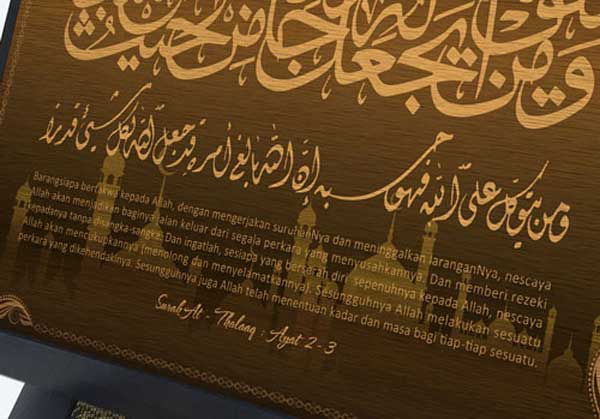 ومن يجعل له من حيث
ومن يتوكل على الله فهو حسبه إن الله بالغ أمره قد جعل الله لكل شيء قدرا
Barangsiapa bertakwa kepada Allah, dengan mengerjakan suruhanNya dan meninggalkan laranganNya, nescaya
Allah akan menjadikan baginya jalan keluar dari segaja perkara yang menyusahkannya. Dan memberi rezeki
kepadanya tanpa disangka-sangka. Dan ingatlah, sesiapa yang berserah diri sepenuhnya kepada Allah, nescaya
Allah akan mencukupkannya (menolong dan menyelamatkannya). Sesungguhnya Allah melakukan sesuatu
perkara yang dikehendakinya. Sesungguhnya juga Allah telah menentuan kadar dan masa bagi tiap-tiap sesuatu.
Surah At - Thalaaq : Ayat 2 - 3